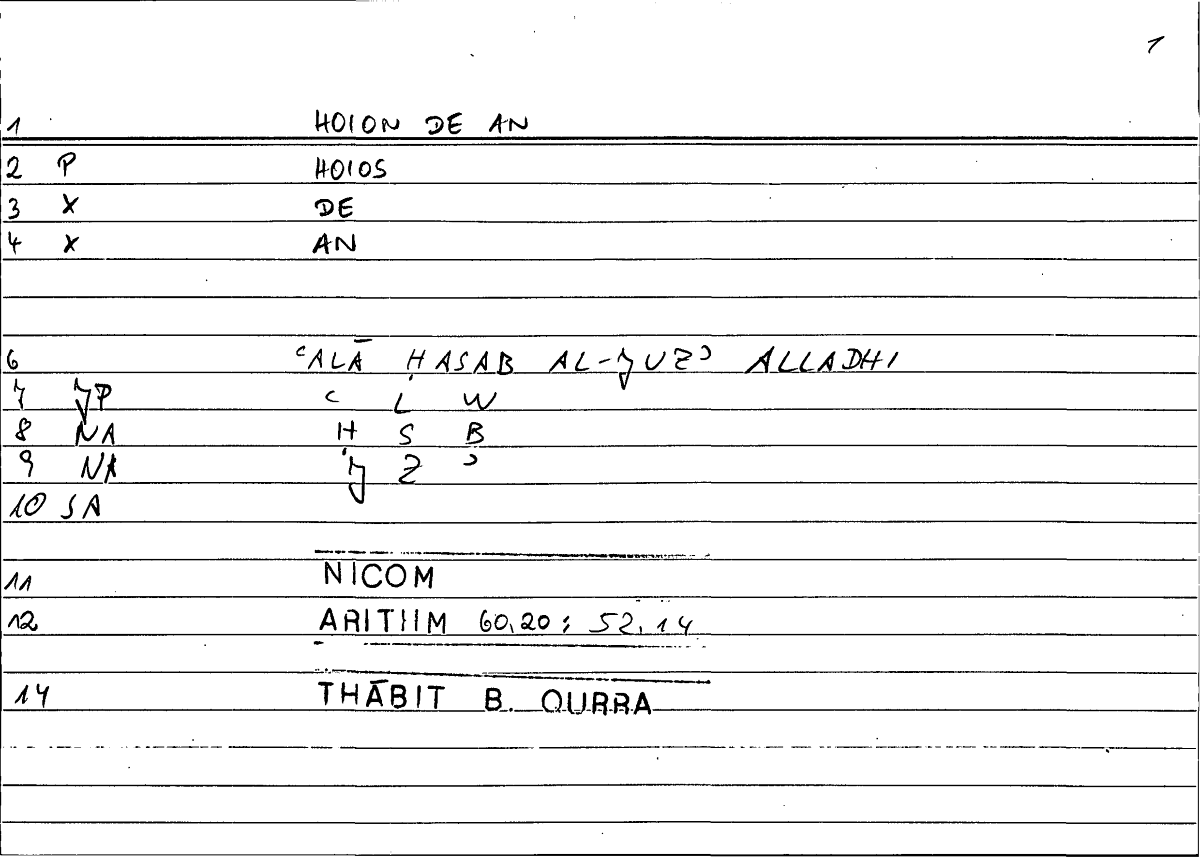 1
1 HOION DE AN
2 P HOIOS
3 X DE
4 X AN
6 ʿALĀ ḤASAB AL-JUZʾ ALLADHI
7 JP ʿ L W
8 NA Ḥ S B
9 NA J Z ʾ
10 SA
11 NICOM
12 ARITHM 60,20 ; 52,14
14 THĀBIT B. QURRA